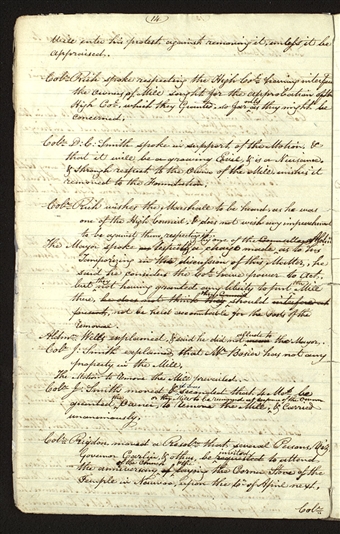 14
Mill enter his protest against removing it, unless it be
appraised.
Col. Rich spoke respecting the High Co. having interfered
the owners of Mill sought for the approbation of the
High Col. which they Granted, so far as they might be
concerned.
Col. D. C. Smith spoke in support of the Motion, &
that it will be a growing Evil, & is a Nuisance
& through respect to the Owners of the Mill, wishes it
removed to the Foundation.
Col. Rich wishes the Marshall to be heard, as he was
one of the High Council, & does not wish any improvement
to be against them, respecting
by one of the Counsellors
The Mayor spoke
Temporizing in the discussion of this Matter, he
said he considers the Col. have power to Act,
but not having granted any liberty to put Mill
there, he does not think they should interfere
not be held accountable for the costs of the
removal.
Aldn. Wells explained, & said he did not allude to the Mayor.
Col. J. Smith explained, that Mr. Bosier has not any
property in the Mill.
The Motion to Remove the Mill prevailed.
Col. J. Smith moved & seconded that 2 Mo. be
or the Mill be removed at expense of the Owners
granted, to Remove the Mill, & Carried
unanimously.
Col. Rigdon moved a Resol. that several Persons, Viz,
Governor Carlin, & others, be invited to attend
of the Church & the
the anniversary of laying the Corner Stone of the
Temple in Nauvoo, upon the 6th of April next.
Col.